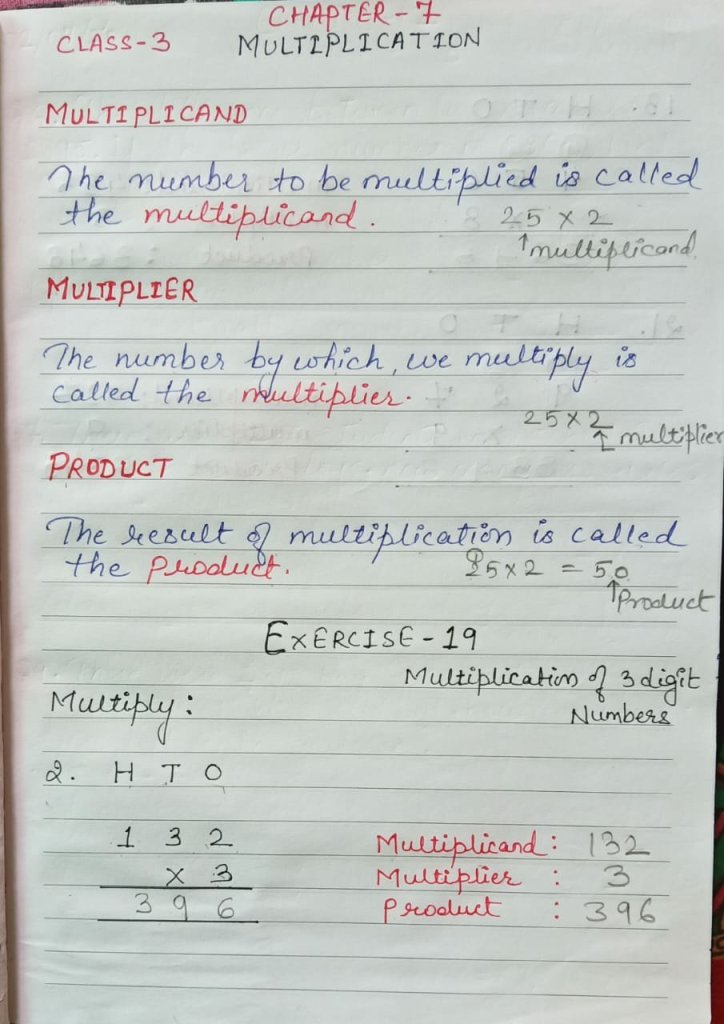 CHAPTER-7
CLASS-3 MULTIPLICATION
MULTIPLICAND
The number to be multiplied is called
the multiplicand. 25 × 2
↑multiplicand
MULTIPLIER
The number by which, we multiply is
called the multiplier.
25×2
↑ multiplier
PRODUCT
The result of multiplication is called
the product. 25×2 = 50
↑Product
EXERCISE-19
Multiplication of 3 digit
Multiply: Numbers
2. H T O
1 3 2 Multiplicand: 132
× 3 Multiplier : 3
3 9 6 Product : 396